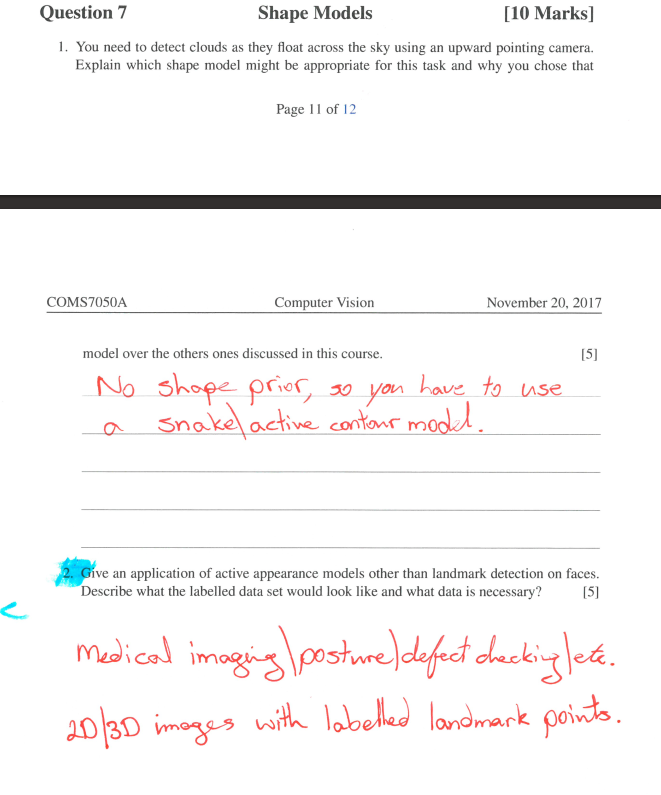 Question 7 Shape Models [10 Marks]
1. You need to detect clouds as they float across the sky using an upward pointing camera.
Explain which shape model might be appropriate for this task and why you chose that
Page 11 of 12
COMS7050A Computer Vision November 20, 2017
model over the others ones discussed in this course. [5]
No shape prior, so you have to use
a snake\active contour model.
2. Give an application of active appearance models other than landmark detection on faces.
Describe what the labelled data set would look like and what data is necessary? [5]
Medical imaging\posture\defect checking\etc.
2D/3D images with labelled landmark points.